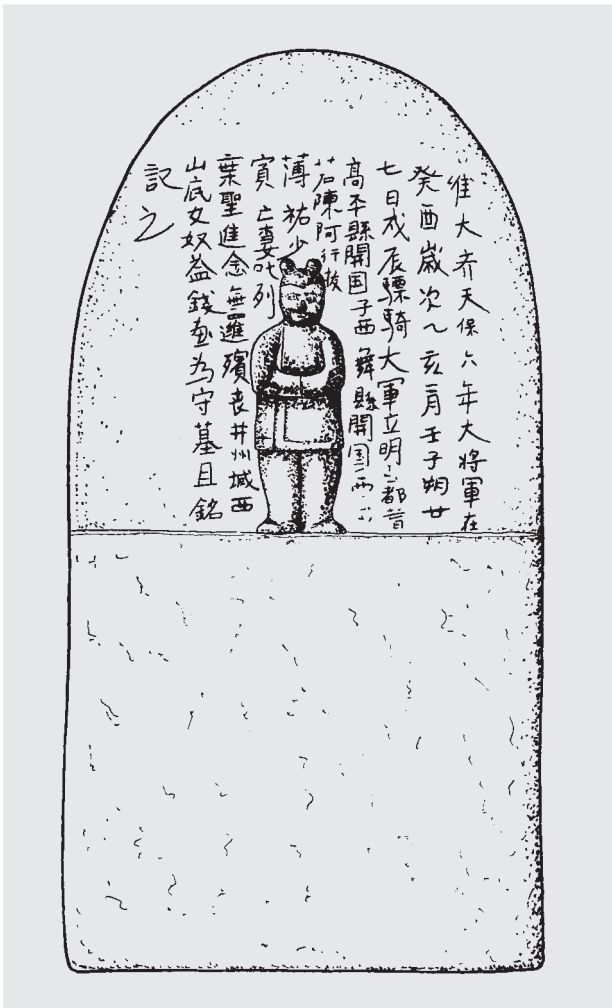 惟大齐天保六年大將軍在
癸酉歲次乙亥二月壬子朔廿
七日戊辰驃騎大軍立明都督
高平縣開国子西舞縣開国
若陳阿行拔
薄祐少
賓亡妻叱列
葉聖進念無邏殯喪并州城西
山底女奴益錢画为守墓且銘
記之